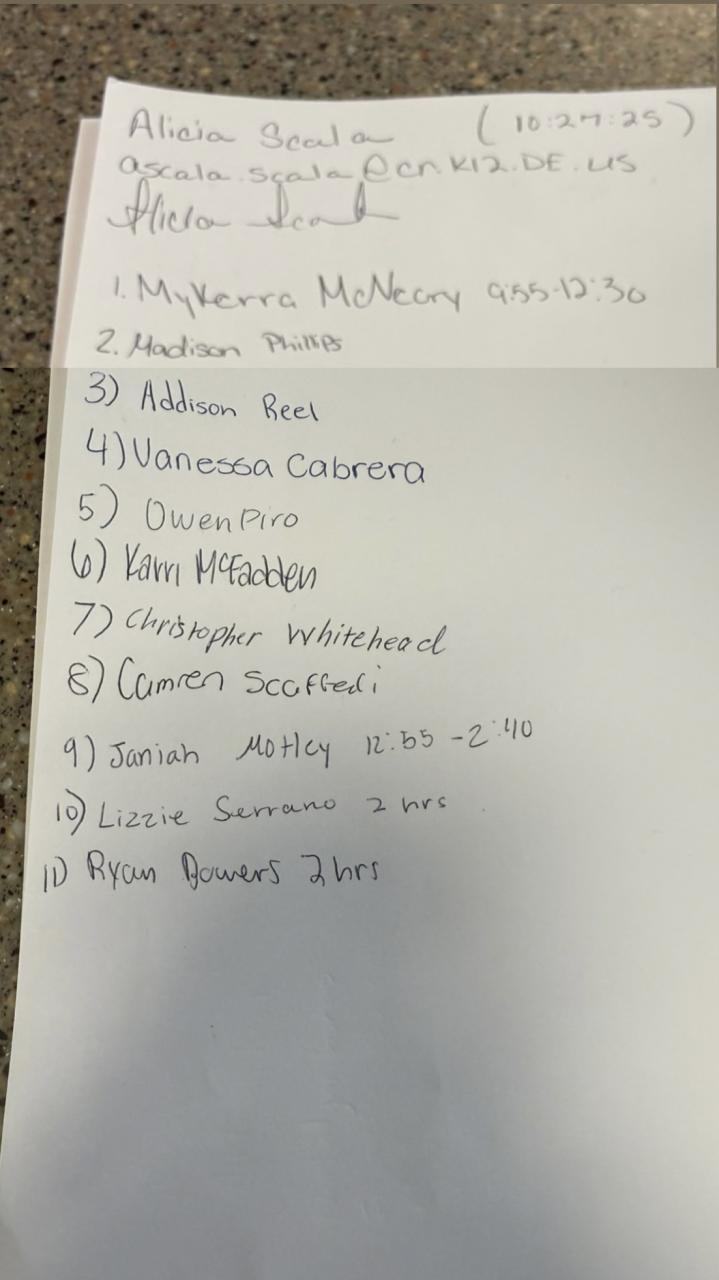 Alicia Scala (10:27:25)
ascala.scala@cr.K12.DE.US
Alicia Scala
1. MyKerra McNeary 9:55-12:30
2. Madison Phillips
3) Addison Reel
4) Vanessa Cabrera
5) Owen Piro
6) Karri McFadden
7) Christopher Whitehead
8) Camren Scaffedi
9) Janiah Motley 12:55 - 2:40
10) Lizzie Serrano 2 hrs
11) Ryan Bowers 2 hrs